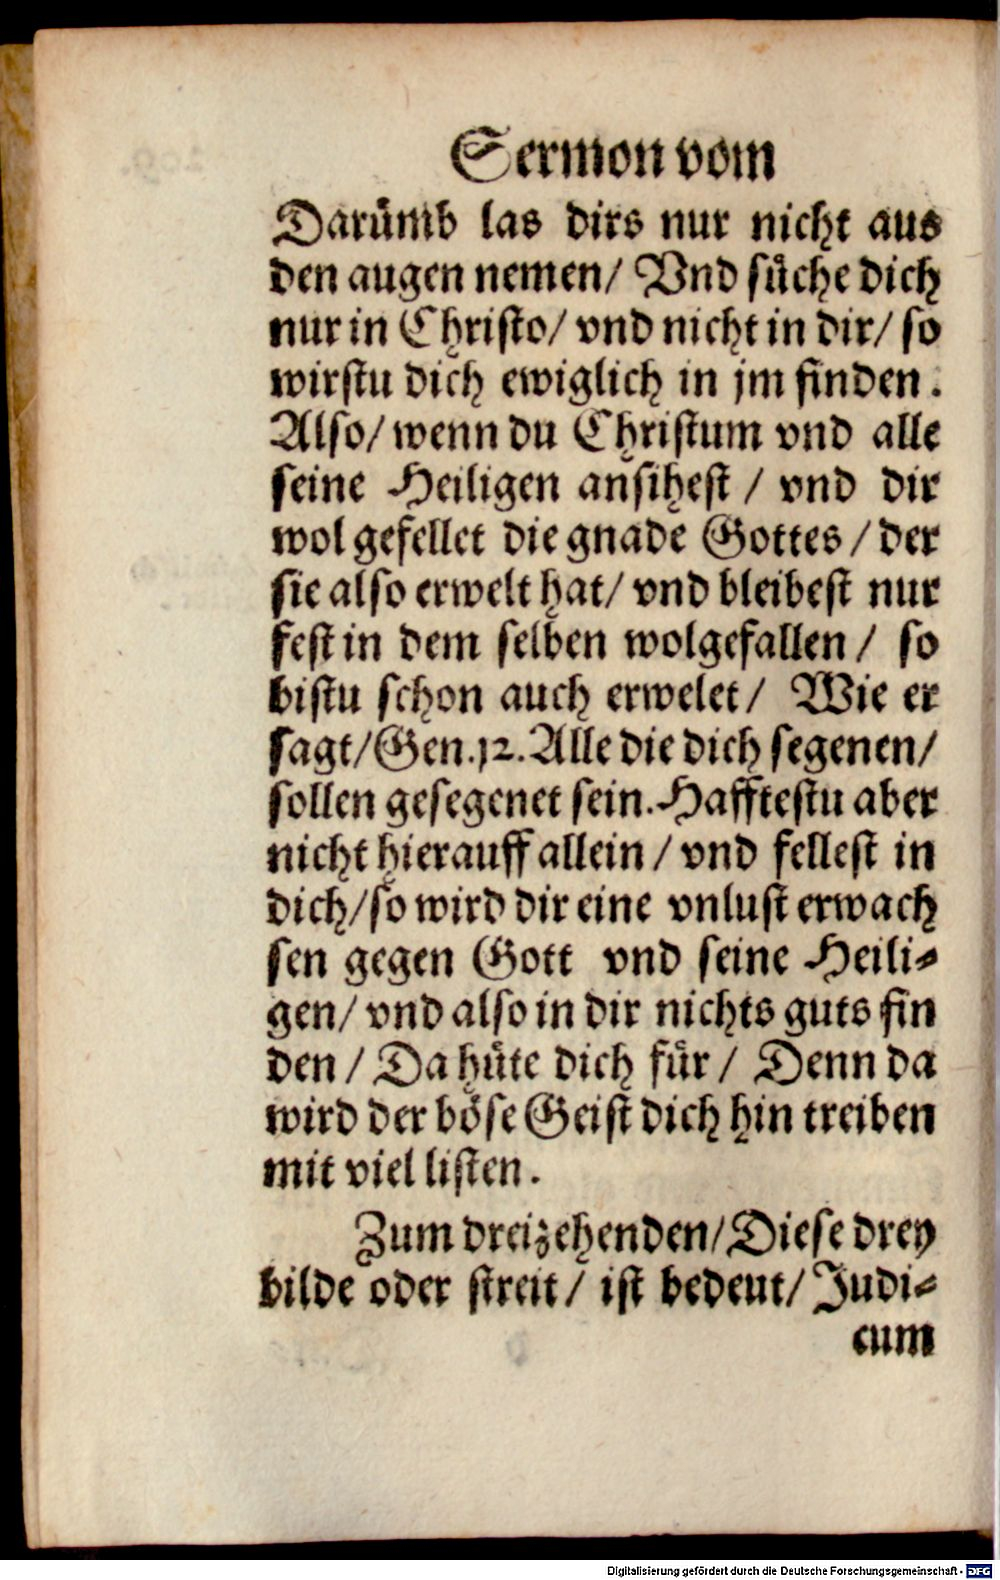 Sermon vom
Darümb las dirs nur nicht aus
den augen nemen/ Vnd süche dich
nur in Christo/ vnd nicht in dir/ so
wirstu dich ewiglich in jm finden.
Also/ wenn du Christum vnd alle
seine Heiligen ansihest / vnd dir
wol gefellet die gnade Gottes / der
sie also erwelt hat/ vnd bleibest nur
fest in dem selben wolgefallen / so
bistu schon auch erwelet/ Wie er
sagt/ Gen. 12. Alle die dich segenen/
sollen gesegenet sein. Hafftestu aber
nicht hierauff allein / vnd fellest in
dich/ so wird dir eine vnlust erwach
sen gegen Gott vnd seine Heili-
gen/ vnd also in dir nichts guts fin
den / Da hüte dich für / Denn da
wird der böse Geist dich hin treiben
mit viel listen.
Zum dreizehenden/ Diese drey
bilde oder streit / ist bedeut/ Judi-
cum
Digitalisierung gefördert durch die Deutsche Forschungsgemeinschaft - DFG